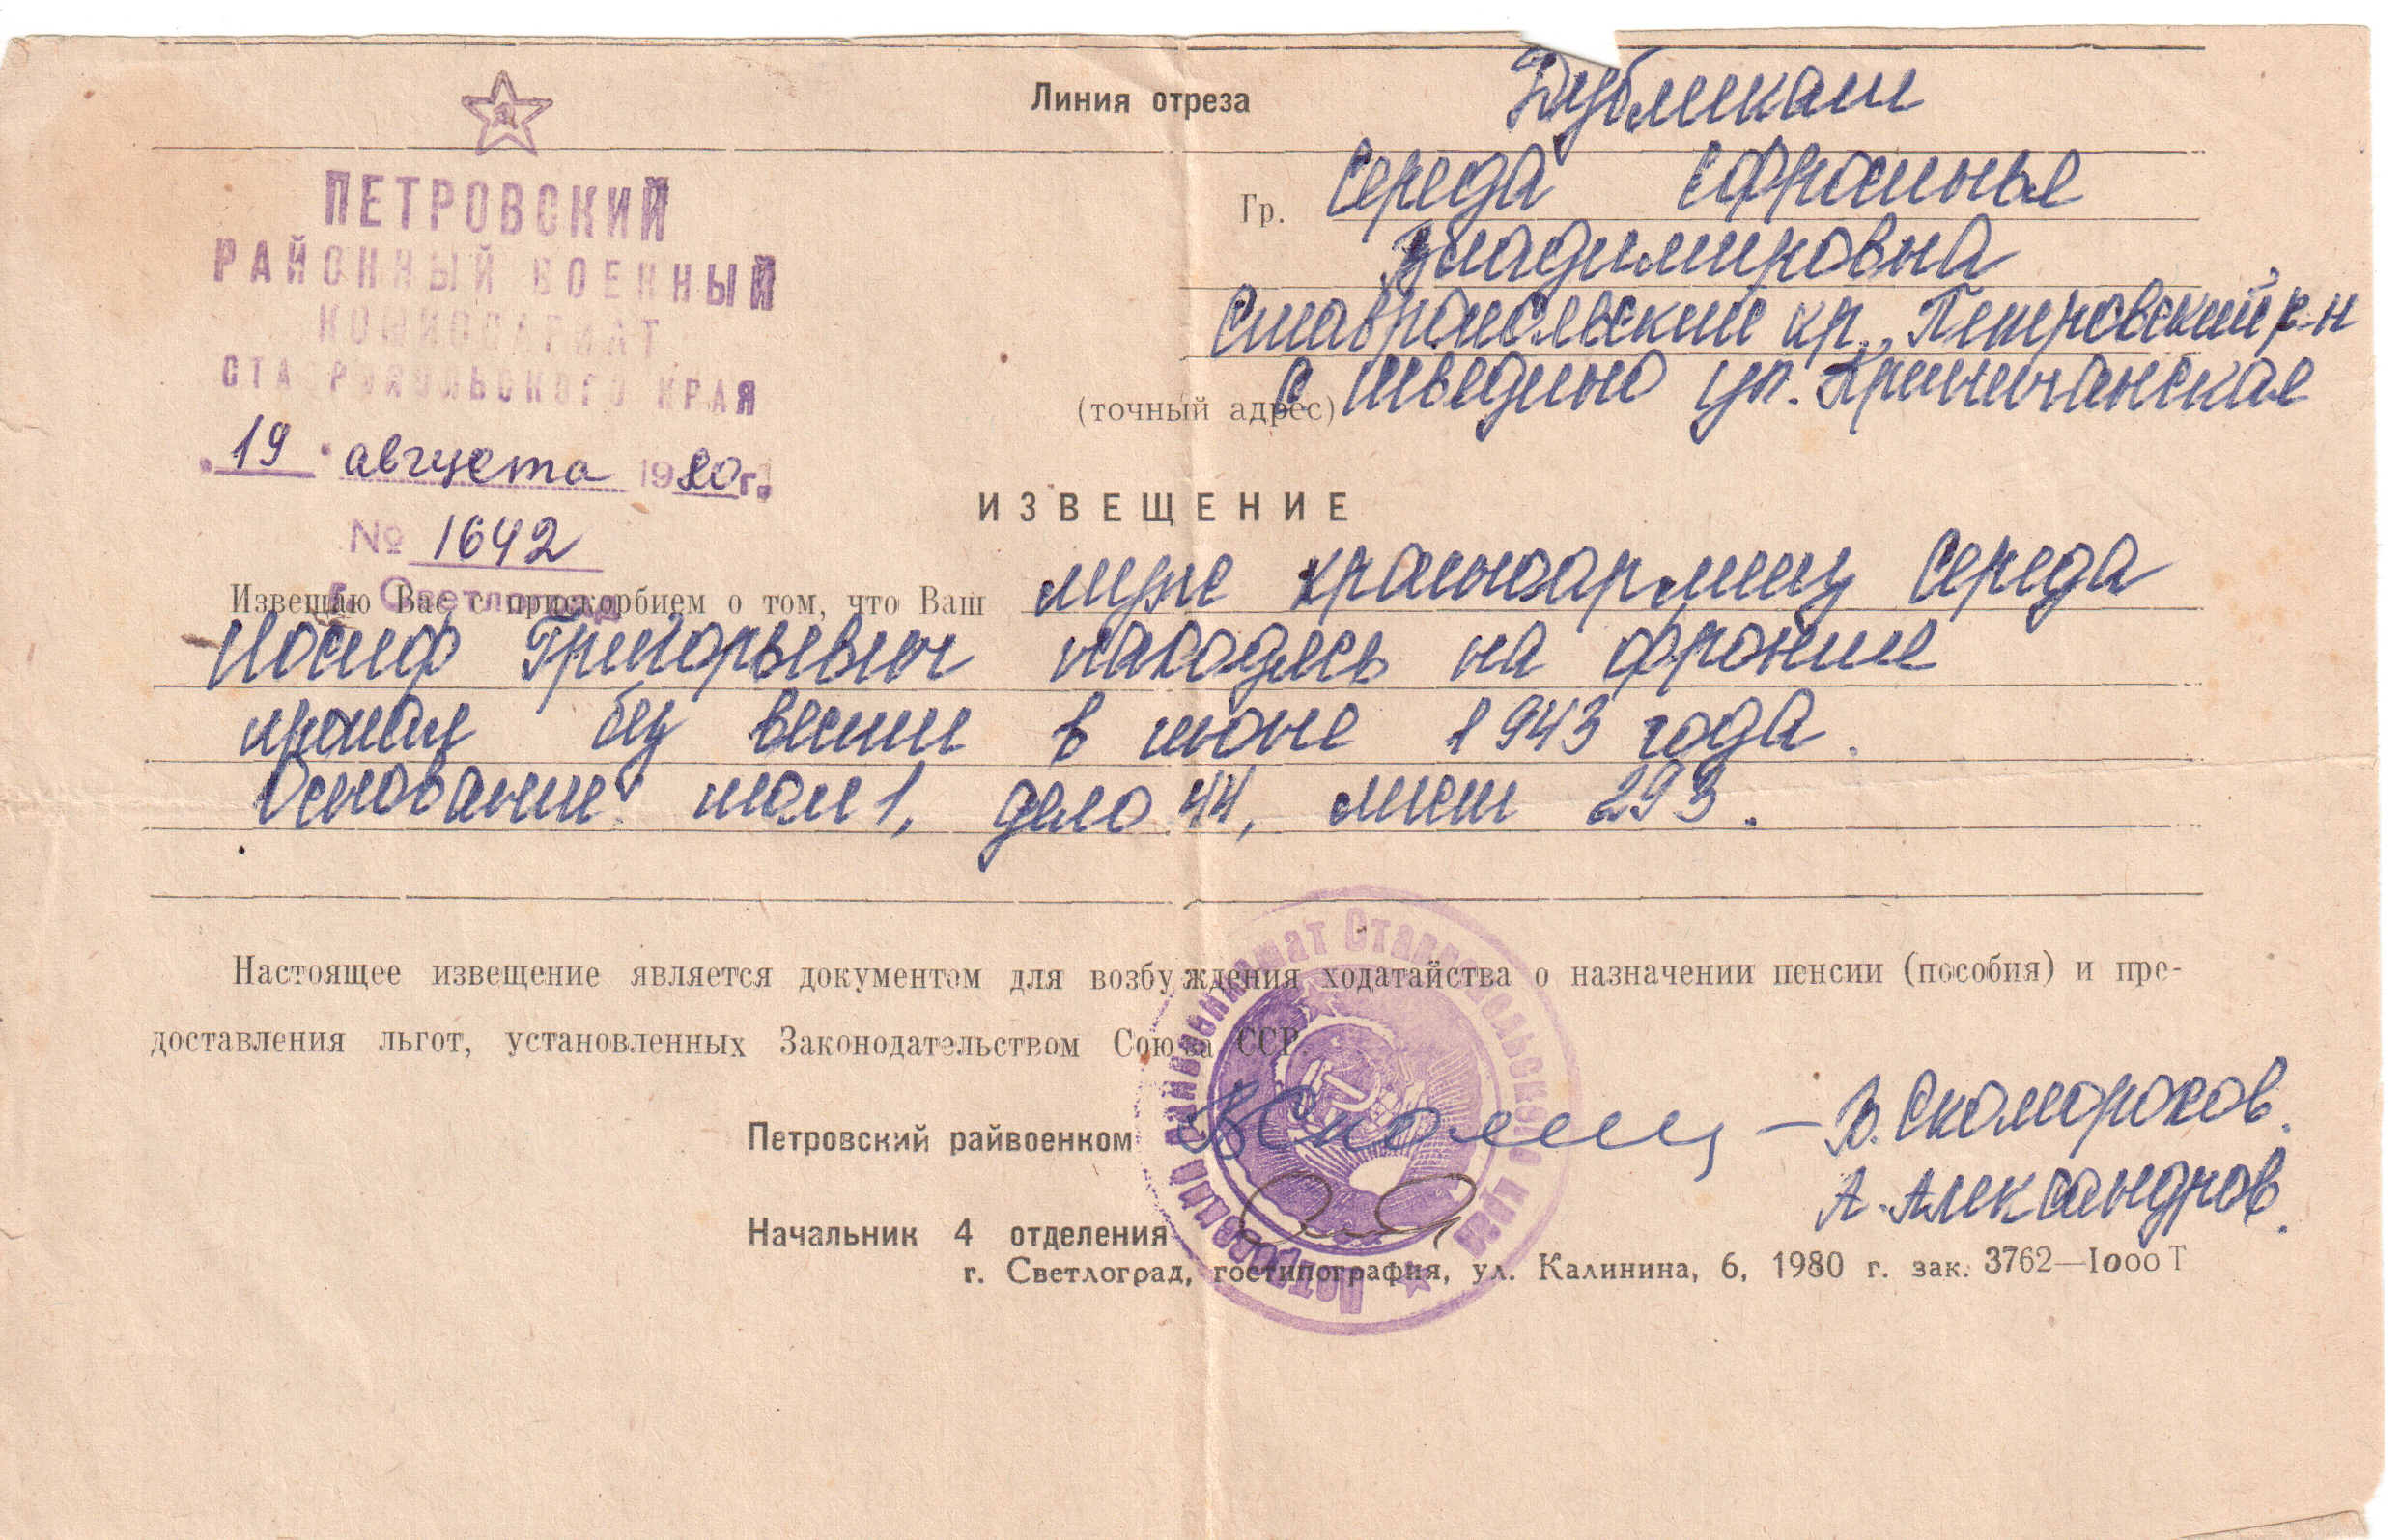 Дубликат
Линия отреза
ПЕТРОВСКИЙ
РАЙОННЫЙ ВОЕННЫЙ
КОМИССАРИАТ
СТАВРОПОЛЬСКОГО КРАЯ
"19" августа 1980 г.
№ 1642
г. Светлоград
Гр. Середа Ефросинье
Владимировна
Ставропольский кр., Петровский р-н
(точный адрес) с. Шведино ул.
ИЗВЕЩЕНИЕ
Извещаю Вас с прискорбием о том, что Ваш муж красноармеец Середа
Иосиф Григорьевич находясь на фронте
пропал без вести в июне 1943 года.
Основание: том 1, дело 44, лист 293.
Настоящее извещение является документом для возбуждения ходатайства о назначении пенсии (пособия) и пре-
доставления льгот, установленных Законодательством Союза ССР.
Петровский райвоенком В. Скоморохов.
А. Александров.
Начальник 4 отделения
г. Светлоград, гостипография, ул. Калинина, 6, 1980 г. зак. 3762—1000 Т
Петровский районный военкомат Ставропольского края